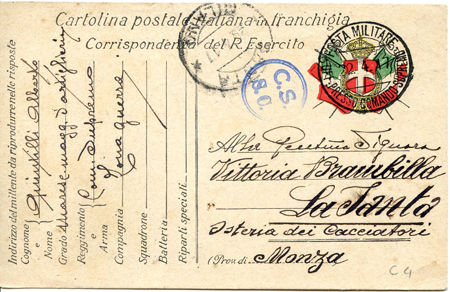 Cartolina postale italiana in franchigia
Corrispondenza del R. Esercito
POSTA MILITARE
COMANDO
C.S.
Indirizzo del mittente da riprodurre nelle risposte
Cognome
e
Nome
Grado
Reggimento
e
Arma
Com. Supremo
Compagnia
Zona guerra
Squadrone
Batteria
Riparti speciali
Signora
Vittoria Brambilla
La Santa
Osteria dei Cacciatori
(Prov. di) Monza
C 4